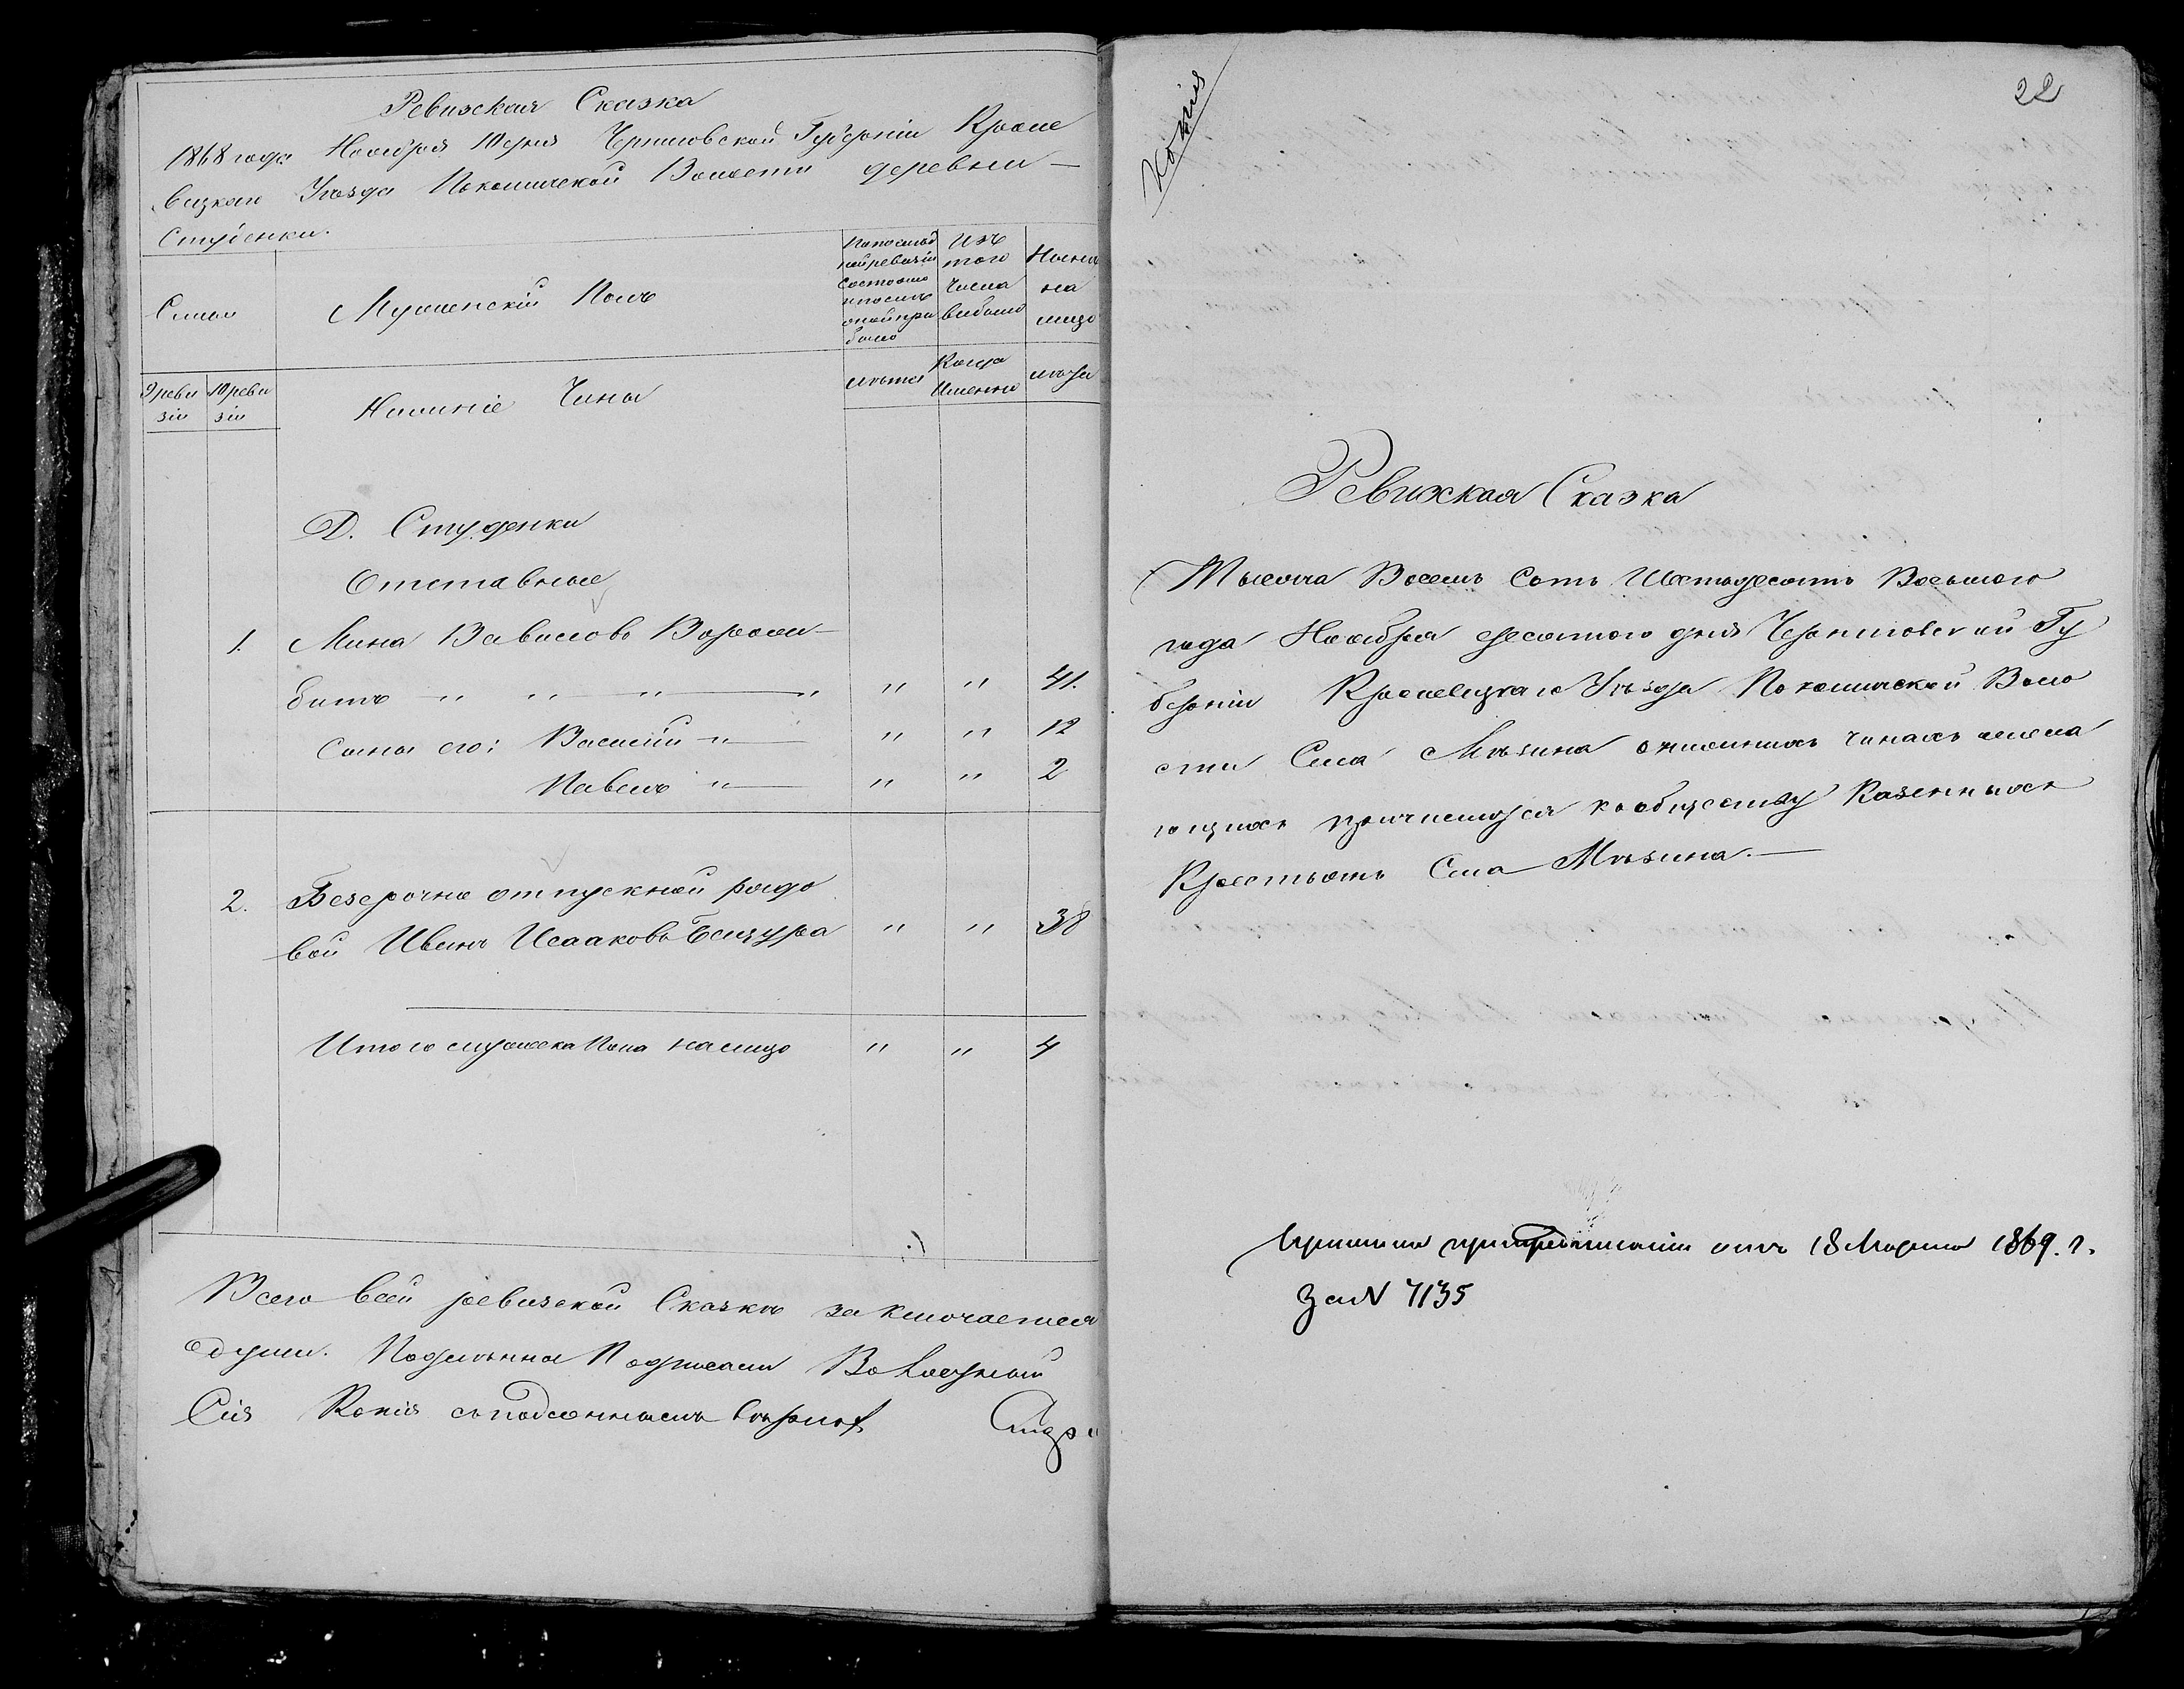 Ревизская Сказка
1868 года Ноября 10 дня Черниговской Губерніи Кроле
вецкаго Уѣзда Покошичской Волости деревни —
Студенки.
Семьи
Мужескій Полъ
По послѣд
ней ревизіи
состояло
и послѣ
оной при
было
Изъ
того
числа
выбыло
Нынѣ
на
лицо
9 реви
зіи
10 реви
зіи
Нижніе Чины
лѣта
Когда
Именно
лѣта
Д. Студенки
Отставные
1. Мина Вавиловъ Вороли-
битъ " " " " " " 41.
Сыны его: Василій " " " 12
Павелъ " " " 2
2. Безсрочно отпускной рядо
вой Иванъ Исааковъ Бицура " " 38
Итого мужеска Пола налицо " " 4
Всего в сей ревизской Сказкѣ заключается
душ. Подлинная Подписали
Сія Копія съ подлинным вѣрна
Копія
22
Ревизская Сказка
Тысяча Восемь Сотъ Шестьдесятъ Восьмого
года Ноября десятого дня Черниговской Гу
берніи Кролевецкаго Уѣзда Покошичской Воло
сти Села Мѣзина о нижнихъ чинахъ жела
ющихъ причислиться къ обществу Казенныхъ
Крестьянъ Села Мѣзина. —
при предписаніи отъ 18 Марта 1869. г.
За N 7135